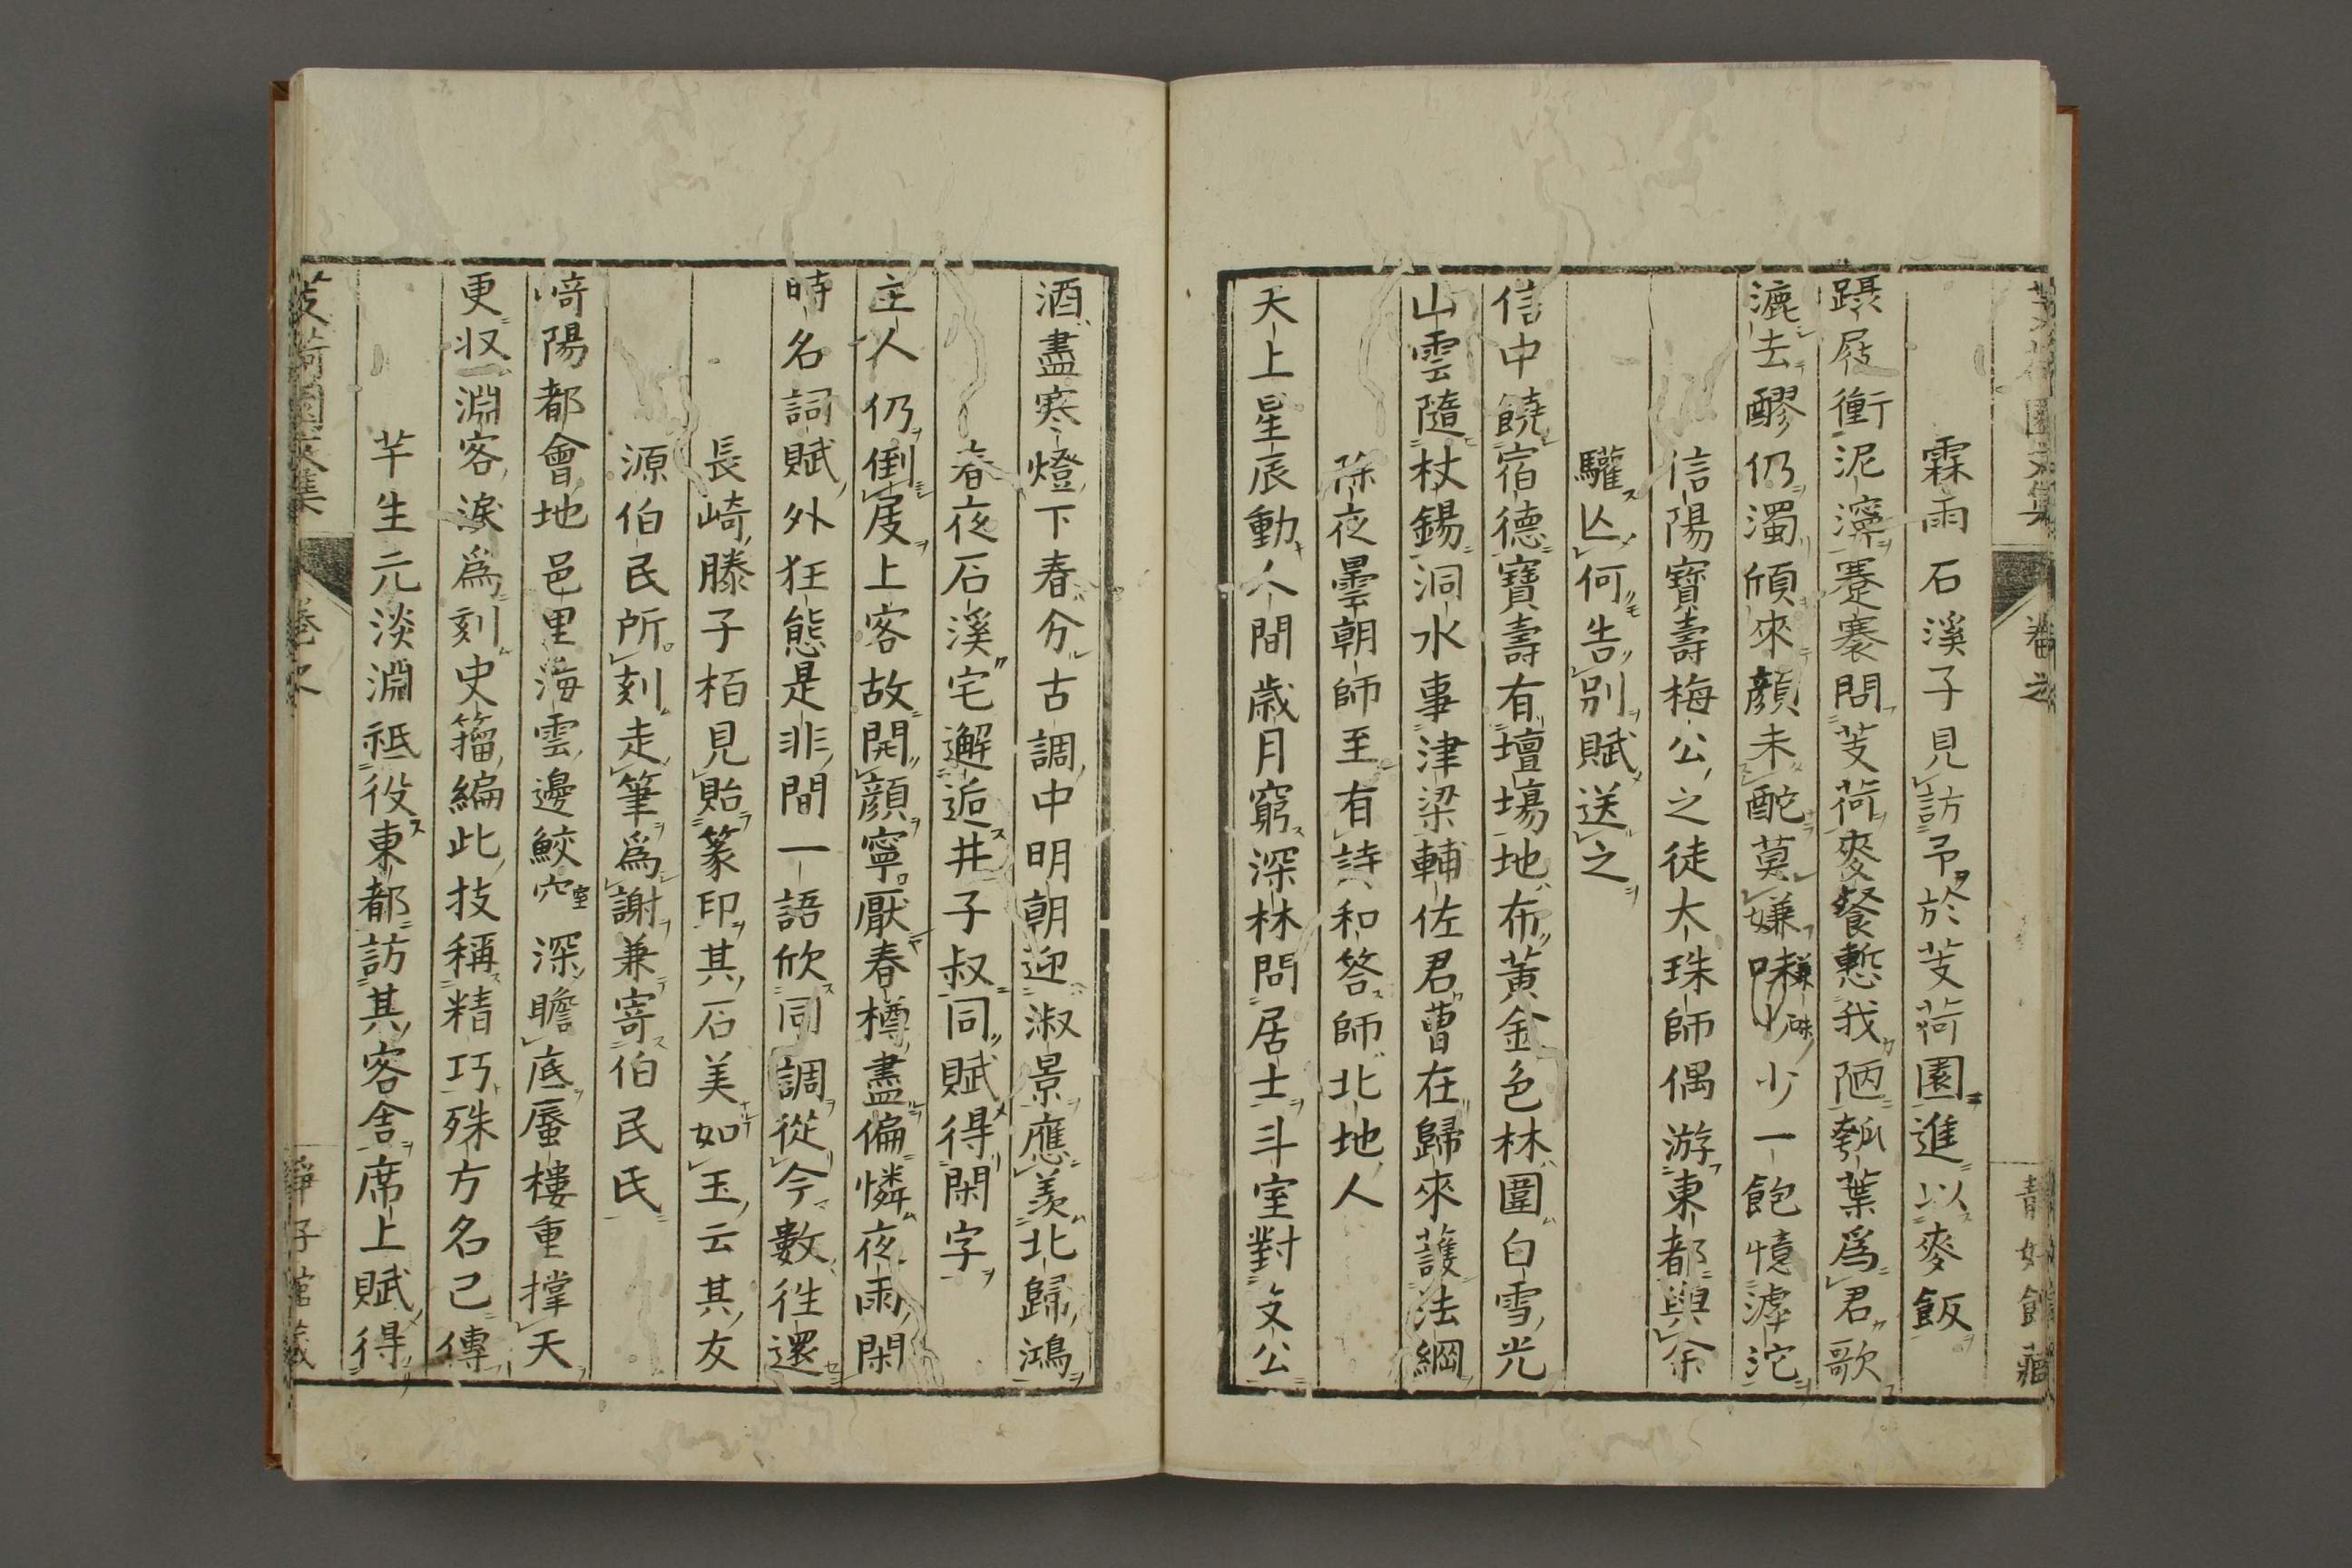 芰荷園文集 卷之 靜好館藏
霖雨石溪子見訪予於芰荷園進以麥飯
躡屐衝泥濘蹇褰問芰荷麥餐慙我陋瓠葉爲君歌
漉去醪仍濁傾來顏未酡莫嫌味少一飽憶滹沱
信陽寶壽梅公之徒大珠師偶游東都與余
驩亾何告別賦送之
信中饒宿德寶壽有壇場地布黃金色林圍白雪光
山雲隨杖錫洞水事津梁輔佐君曹在歸來護法綱
除夜曇朝師至有詩和答師北地人
天上星辰動人間歲月窮深林問居士斗室對文公
酒盡寒燈下春分古調中明朝迎淑景應羨北歸鴻
春夜石溪宅邂逅井子叔同賦得閑字
主人仍倒屐上客故開顏寧厭春樽盡偏憐夜雨閑
時名詞賦外狂態是非間一語欣同調從今數往還
長崎滕子栢見貽篆印其石美如玉云其友
源伯民所刻走筆爲謝兼寄伯民氏
﨑陽都會地邑里海雲邊鮫室深瞻底蜃樓重撐天
更収淵客淚爲刻史籀編此技稱精巧殊方名已傳
芊生元淡淵祗役東都訪其客舍席上賦得
芰荷園文集 卷之 靜好館藏